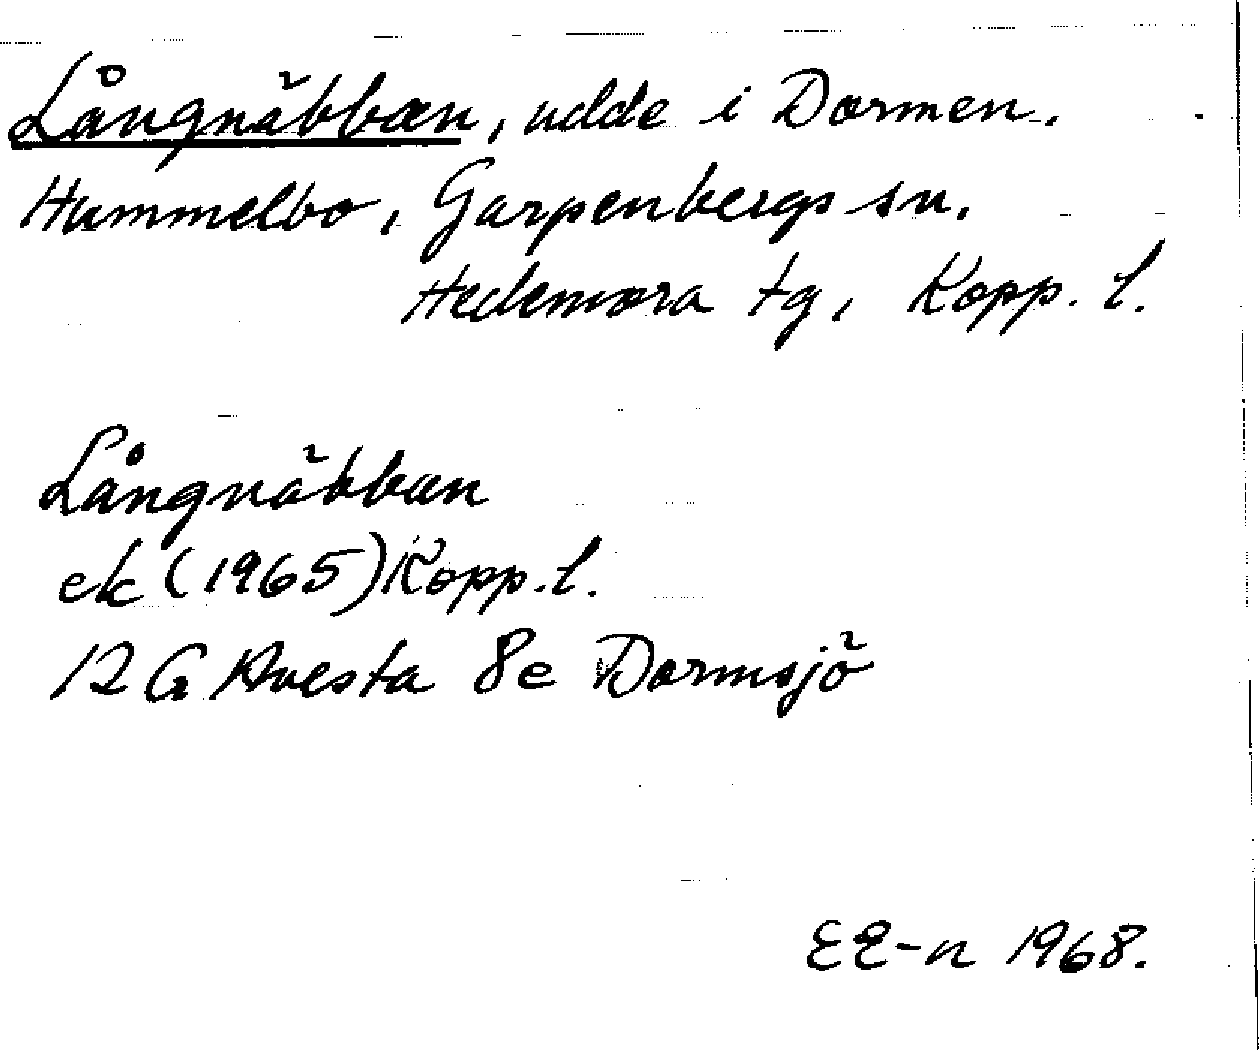 Långnäbban, udde i Dormen.
Hummelbo, Garpenbergs sn.
Hedemora tg, Kopp. l.
Långnäbban
ek (1965) Kopp. l.
12 G Avesta 8e Dormsjö
EE-n 1968.